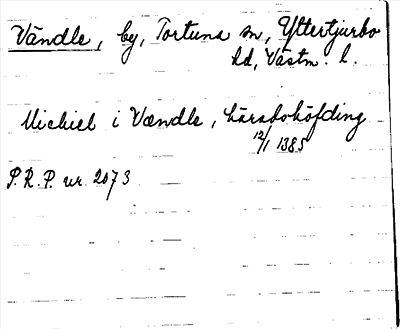 Vändle, by, Tortuna sn, Yttertjurbo
hd, Västm. l.
Michiel i Vændle, häradshöfding
12/1 1385
P.R.P. nr. 2073